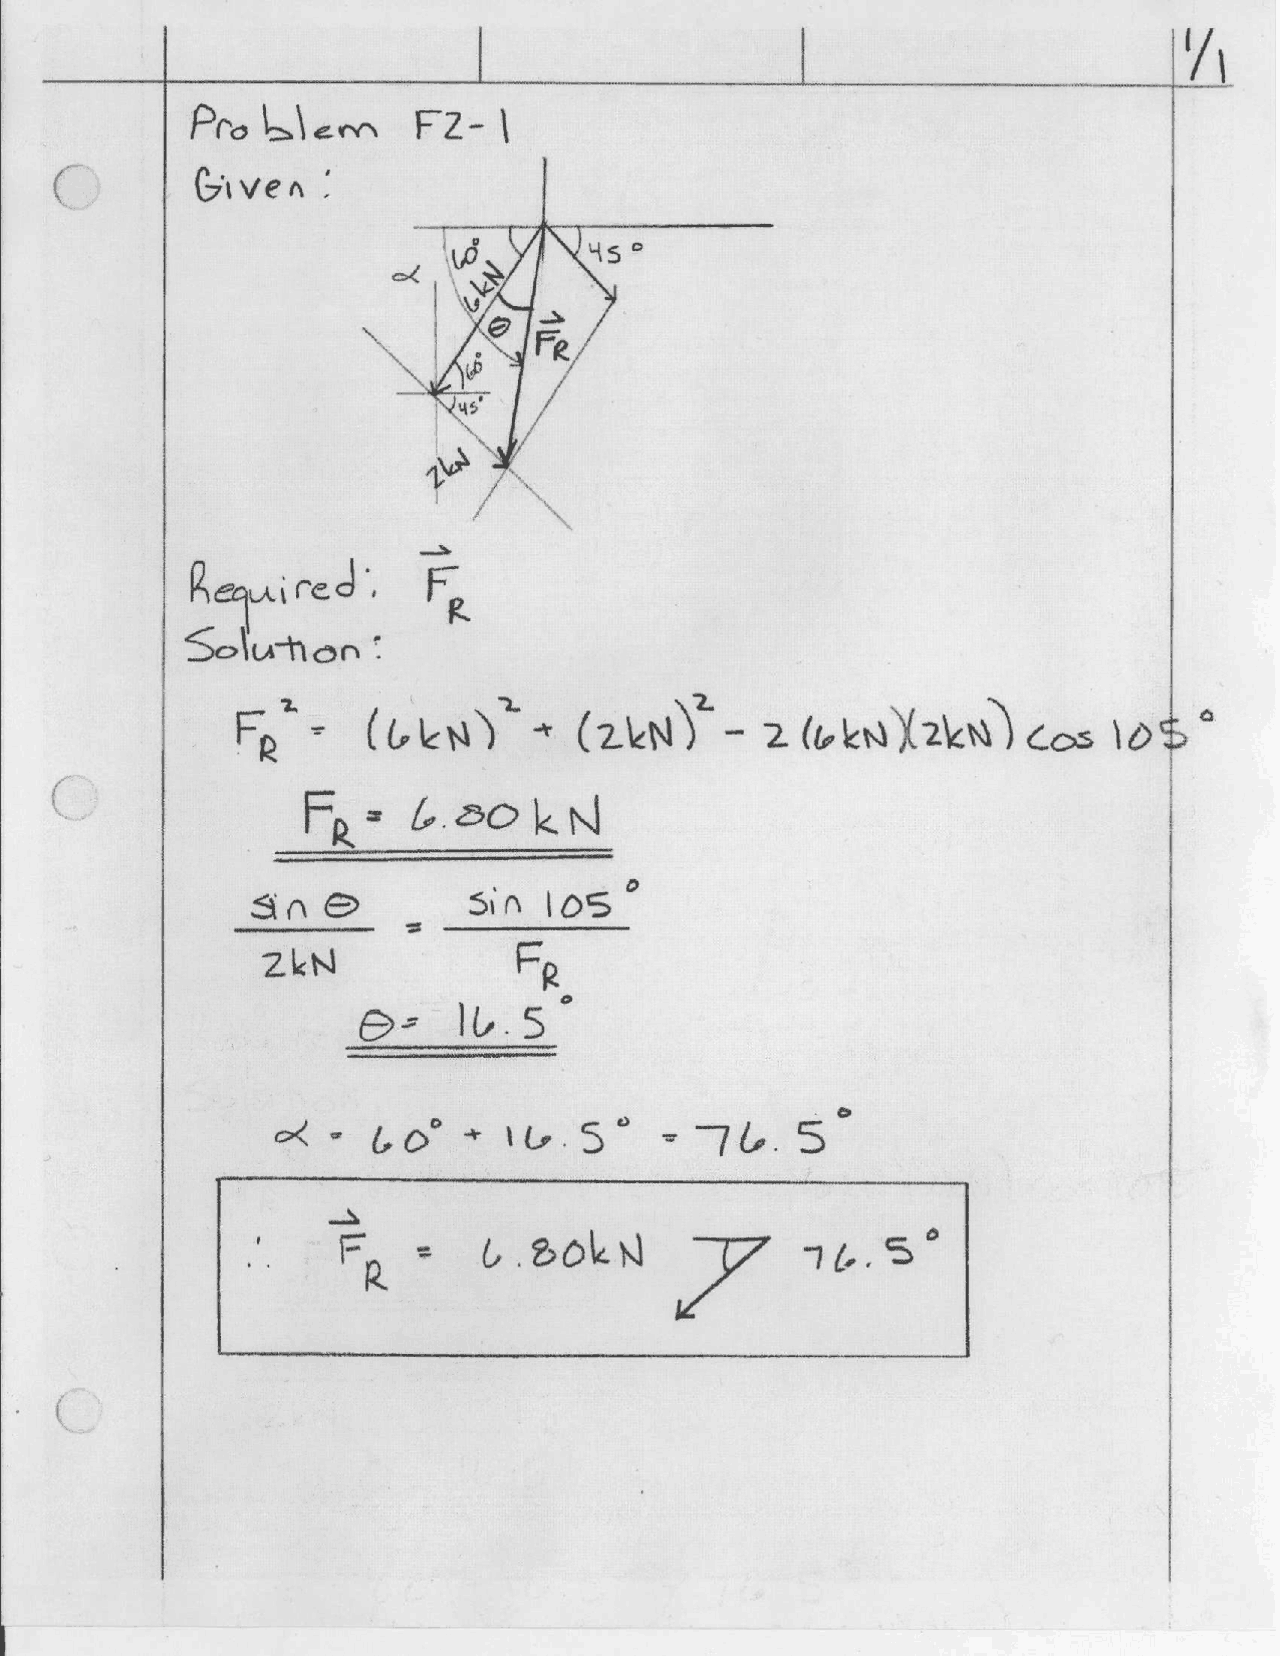 1/1
Problem F2-1
Given:
60°
45°
α
6kN
θ
F⃗_R
60°
45°
2kN
Required: F⃗_R
Solution:
F_R² = (6kN)² + (2kN)² - 2(6kN)(2kN) cos 105°
F_R = 6.80kN
sin θ / 2kN = sin 105° / F_R
θ = 16.5°
α = 60° + 16.5° = 76.5°
∴ F⃗_R = 6.80kN 76.5°